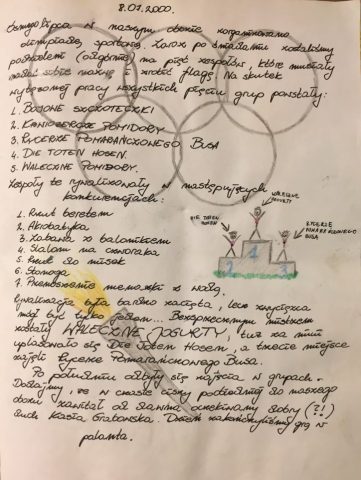 8.07.2000.
Ósmego lipca w naszym obozie zorganizowano
olimpiadę sportową. Zaraz po śniadaniu zostaliśmy
podzieleni (ogólnie) na pięć zespołów, które musiały
nadać sobie nazwę i zrobić flagę. Na skutek
wytężonej pracy wszystkich pięciu grup powstały:
1. BOJOWE SZCZOTECZKI
2. KANIBERSKIE POMIDORY
3. RYCERZE POMARAŃCZOWEGO BUSA
4. DIE TOTEN HOSEN.
5. WALECZNE POMIDORY.
Zespoły te rywalizowały w następujących
konkurencjach:
1. Rzut beretem
2. Akrobatyka
3. Zabawa z balonikiem
4. Slalom na czworaka
5. Rzut do misek
6. Stonoga
7. Przenoszenie menażki z wodą.
WALECZNE JOGURTY
DIE TOTEN HOSEN
RYCERZE POMARAŃCZOWEGO BUSA
2 1 3
Rywalizacja była bardzo zacięta, lecz zwycięzca
mógł być tylko jeden... Bezsprzecznym mistrzem
zostały WALECZNE JOGURTY, tuż za nimi
uplasowało się Die Toten Hosen a trzecie miejsce
zajęli Rycerze Pomarańczowego Busa.
Po południu odbyły się zajęcia w grupach.
Dodajmy, że w czasie ciszy poobiedniej do naszego
obozu zawitał od dawna oczekiwany dobry (?!)
duch Kasia Grabowska. Dzień zakończyliśmy grą w
palanta.